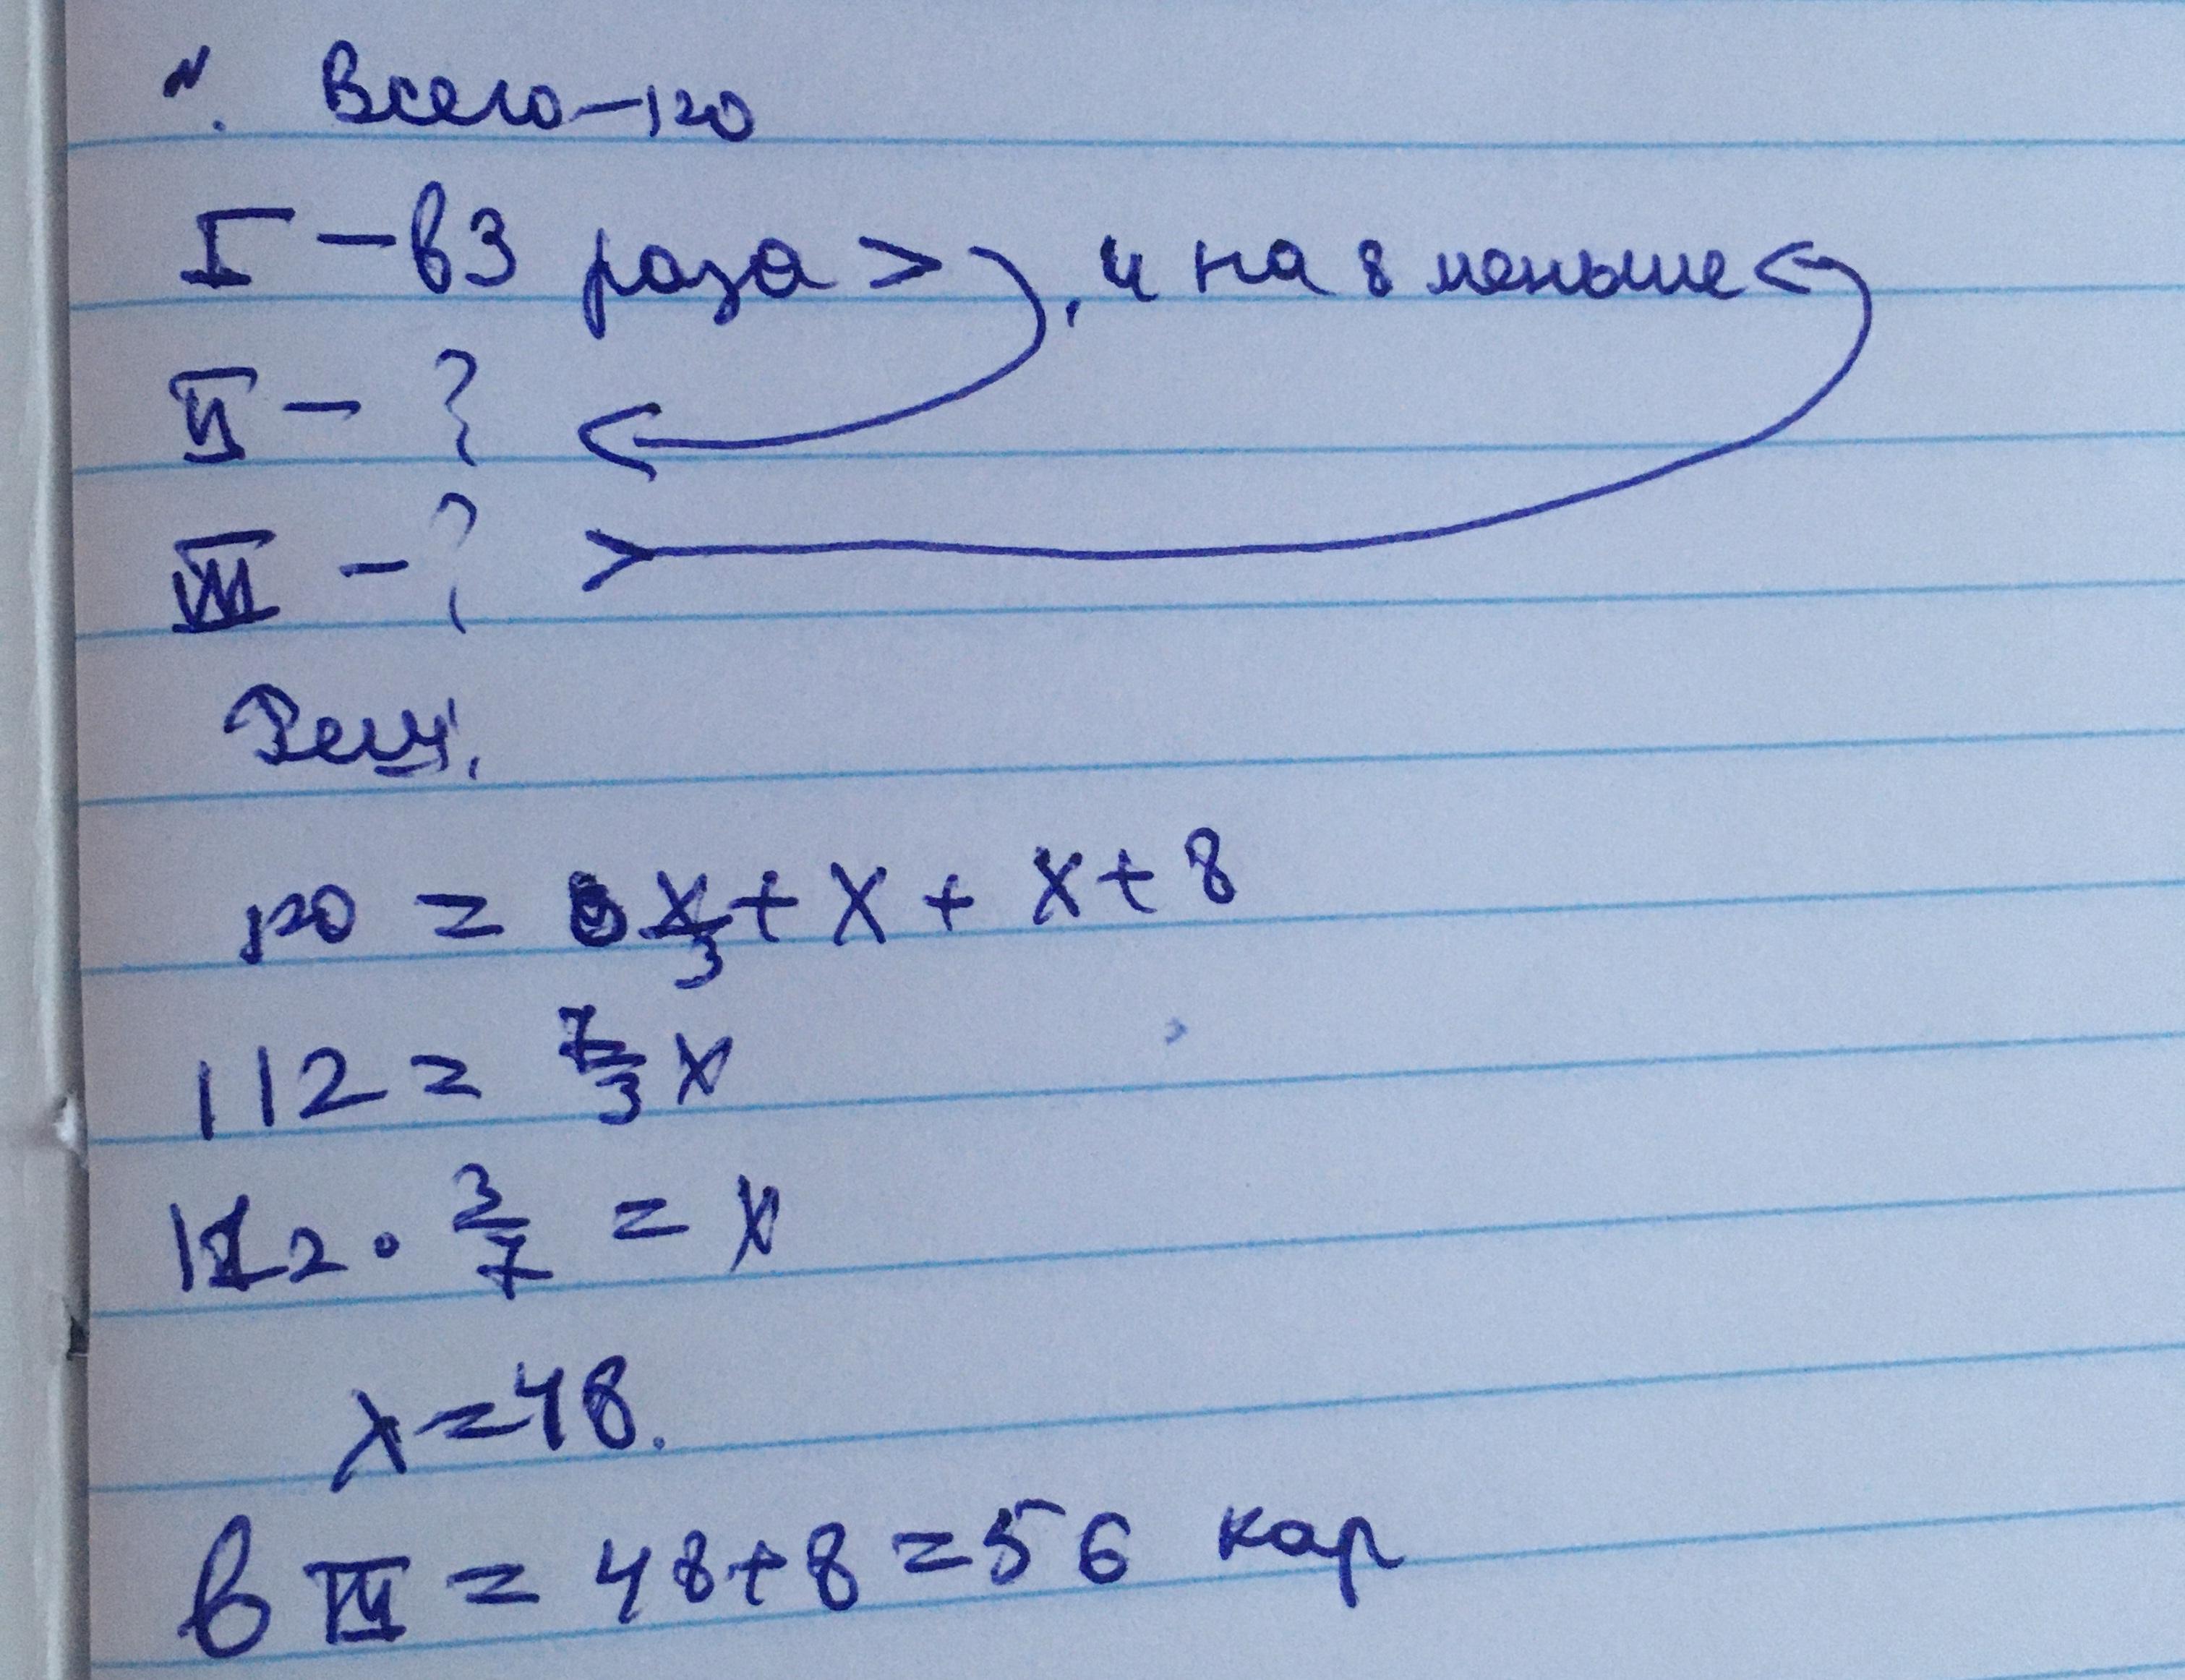 N. Всего – 120
I – в 3 раза >, и на 8 меньше
II – ?
III – ?
Реш.
120 = x/3 + x + x + 8
112 = 7/3 x
112 · 3/7 = x
x = 48.
в III = 48 + 8 = 56 кар